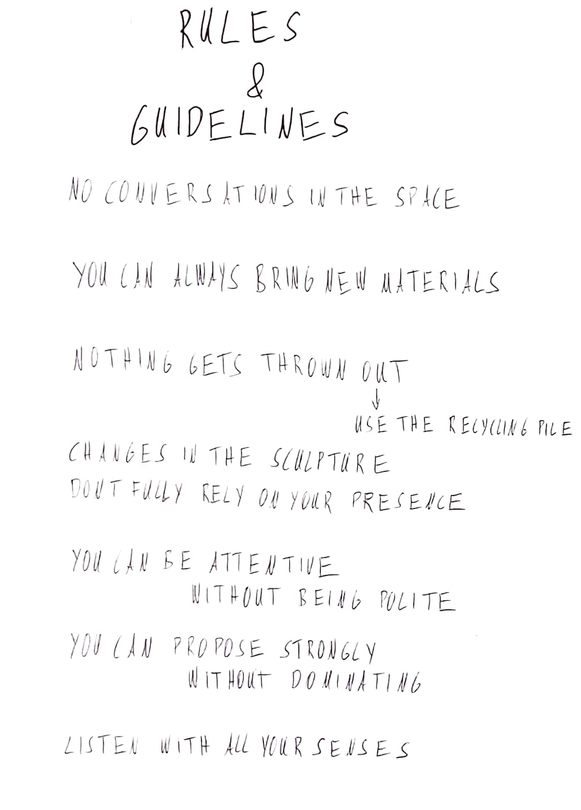 RULES
&
GUIDELINES
NO CONVERSATIONS IN THE SPACE
YOU CAN ALWAYS BRING NEW MATERIALS
NOTHING GETS THROWN OUT
↓
USE THE RECYCLING PILE
CHANGES IN THE SCULPTURE
DONT FULLY RELY ON YOUR PRESENCE
YOU CAN BE ATTENTIVE
WITHOUT BEING POLITE
YOU CAN PROPOSE STRONGLY
WITHOUT DOMINATING
LISTEN WITH ALL YOUR SENSES